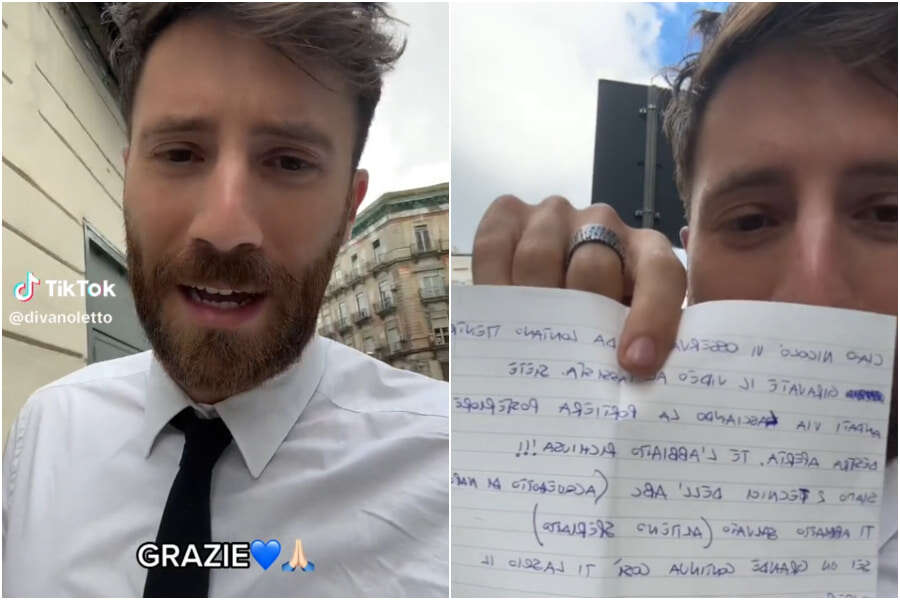 TikTok
@divanoletto
GRAZIE💙🙏🏻
CIAO NICOLÒ, VI DA LONTANO
GIRAVATE IL VIDEO SIETE
ANDATI VIA LASCIANDO LA PORTIERA POSTERIORE
DESTRA APERTA. TE L'ABBIAMO RICHIUSA!!!
SIAMO 2 TECNICI DELL'ABC (ACQUEDOTTO DI
TI ABBIAMO SALVATO (ALMENO SPERIAMO)
SEI UN GRANDE CONTINUA COSÌ TI LASCIO IL